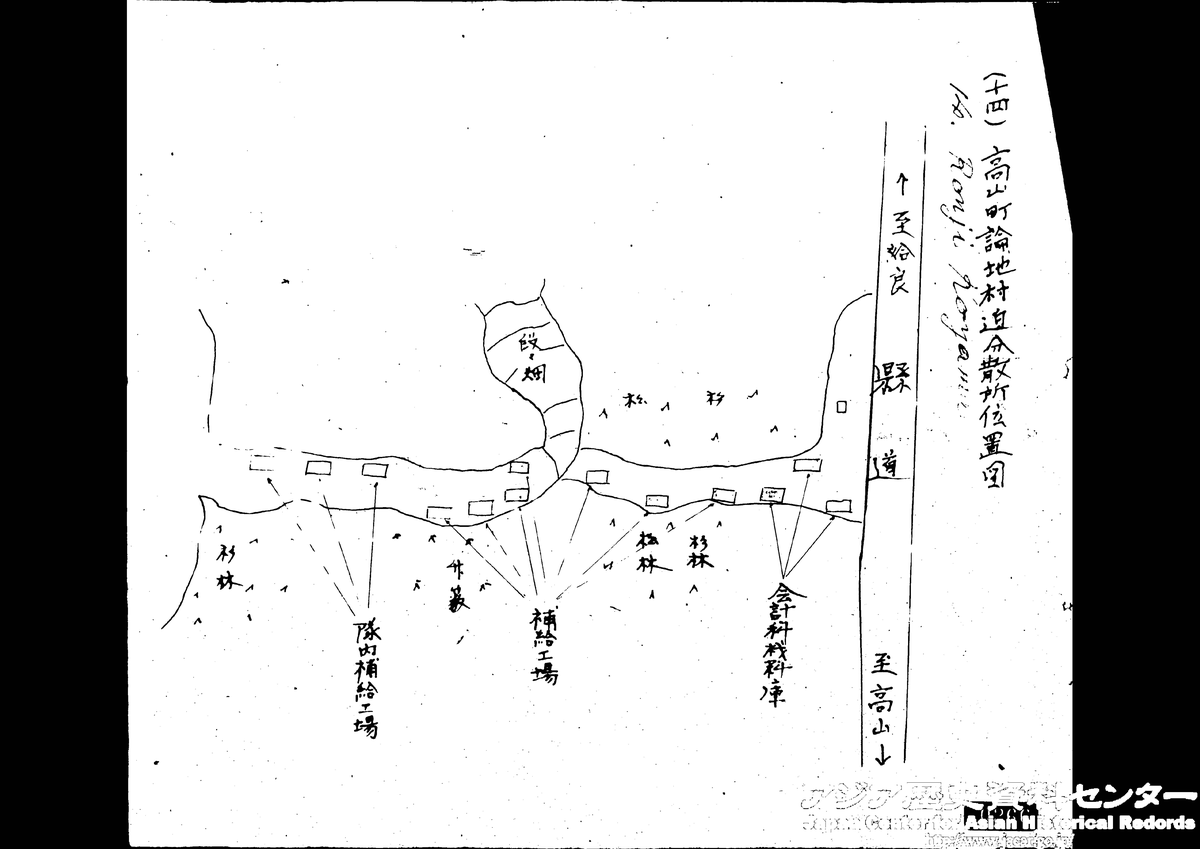 (十四) 高山町論地村迫分散所位置図
14. Ronji Kōyama
↑至給良
縣道
至高山↓
松 杉
段々畑
杉林
竹藪
松林
杉林
隊内補給工場
補給工場
会計科材料庫
アジア歴史資料センター
Japan Center for Asian Historical Records
http://www.jacar.go.jp/